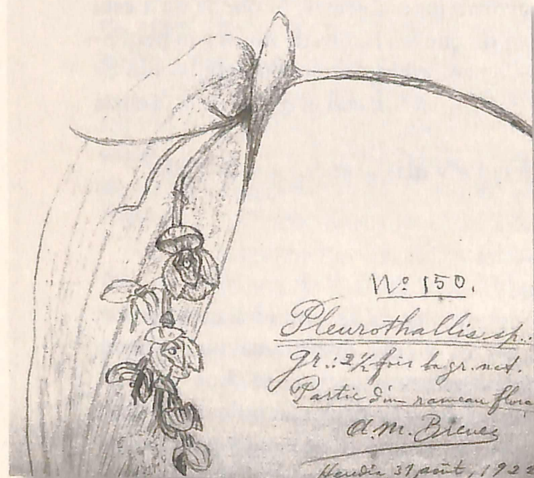 No 150.
Pleurothallis sp.:
gr.: 2½ fois la gr. nat.
Partie d'un rameau flora
A. M. Brenes
Heredia 31 août, 1922